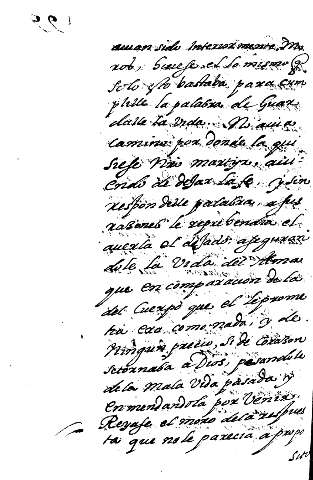 auian sido Interiormente, Mo
rob, hiciese el lo mismo q
solo esto bastaba, para cum
plirle la palabra de Guar
dalle la Vida. No auia
camino por donde la qui
siese Nro martyr, aui
endo de dejar la fe, y sin
responderle palabra, a sus
raçones le reprehendia el
auerla el dejado, aseguran
dole la Vida del Alma
que en comparacion de la
del Cuerpo que el le prome
tia era como nada, y de
Ningun precio, si de Corazon
se tornaba a Dios, pesandole
de la Mala Vida pasada, y
enmendandola por Venir.
Reyase el moro de la respues
ta que no le parecia a propo
sito